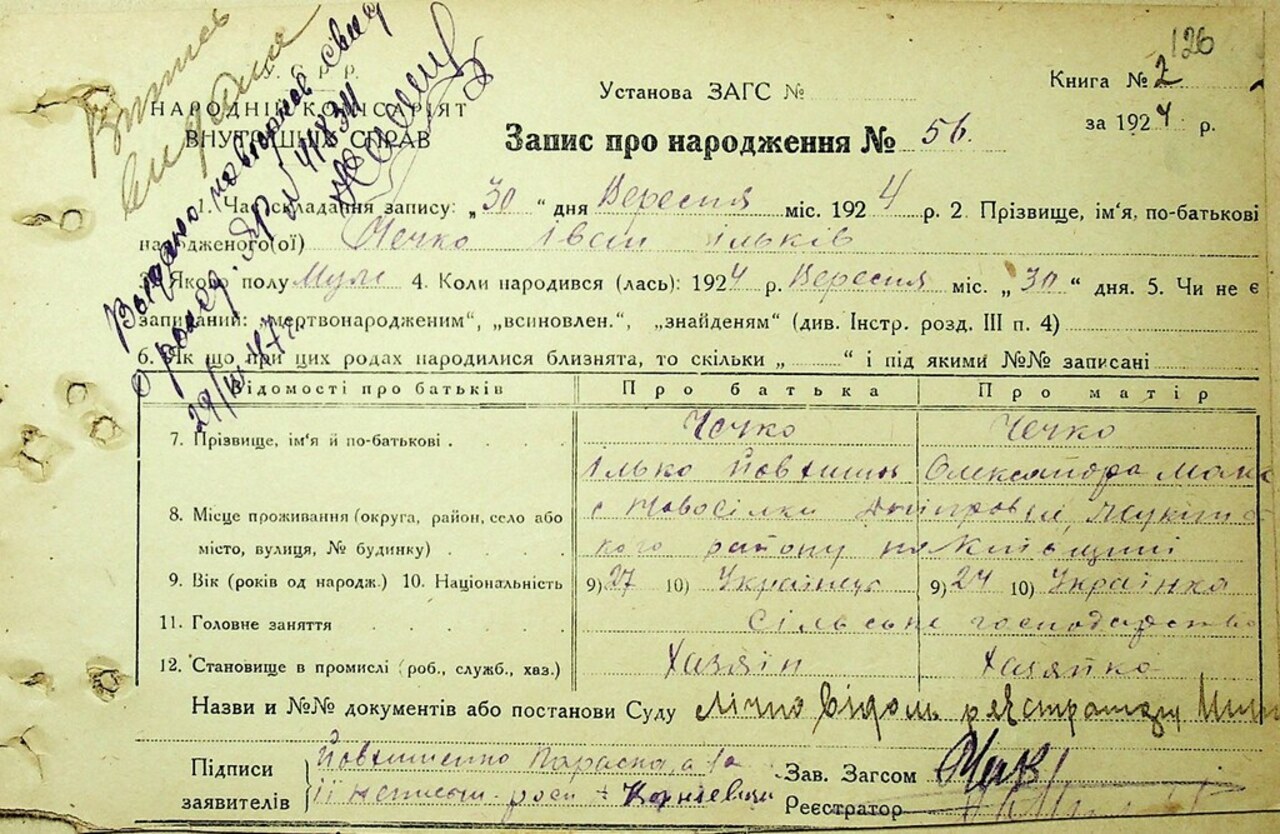 126
У. С. Р. Р.
НАРОДНІЙ КОМІСАРІЯТ
ВНУТРІШНІХ СПРАВ
Установа ЗАГС №
Книга № 2
за 1924 р.
Запис про народження № 56.
Видано повторное свид
о рожд.
29/
1. Час складання запису: „30“ дня Вересня міс. 1924 р. 2. Прізвище, ім'я, по-батькові
народженого(ої) Чечко Іван Ільків
3. Якого полу Муж 4. Коли народився (лась): 1924 р. Вересня міс. „30“ дня. 5. Чи не є
записаний: „мертвонародженим“, „всиновлен.“, „знайденям“ (див. Інстр. розд. III п. 4)
6. Як що при цих родах народилися близнята, то скільки „ “ і під якими №№ записані
Відомості про батьків Про батька Про матір
7. Прізвище, ім'я й по-батькові Чечко Чечко
Ілько Олександра
8. Місце проживання (округа, район, село або с Новосілки
місто, вулиця, № будинку) кого району на Київщині
9. Вік (років од народж.) 10. Національність 9) 27 10) Українець 9) 24 10) Українка
11. Головне заняття Сільське господарство
12. Становище в промислі (роб., служб., хаз.) Хазяїн Хазяйка
Назви и №№ документів або постанови Суду Лічно
Підписи Параска, а за
заявителів її неписьм. Корнієвич
Зав. Загсом
Реєстратор